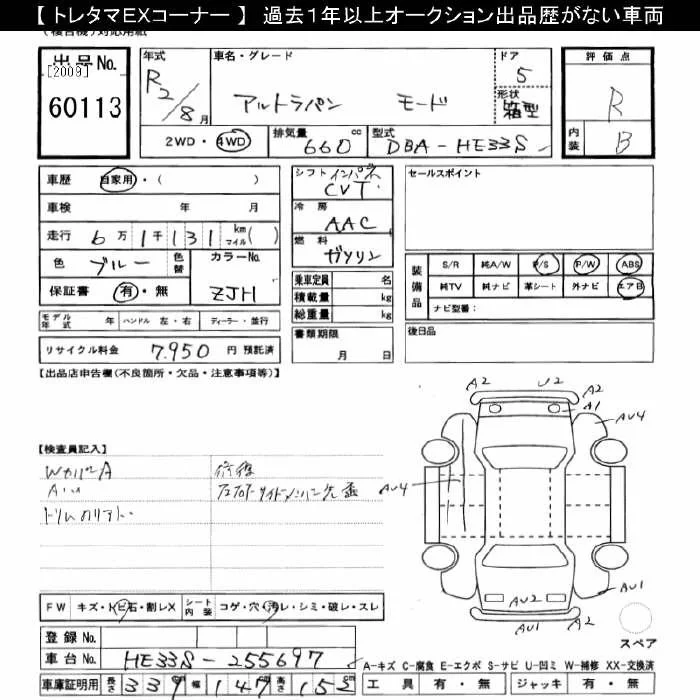 【 トレタマEXコーナー 】 過去1年以上オークション出品歴がない車両
出品No.
[2009]
60113
年式
R2/8月
車名・グレード
アルトラパン モード
ドア
5
形状
箱型
2WD・4WD
排気量
660cc
型式
DBA-HE33S
評価点
R
内装
B
車歴 自家用・( )
車検 年 月
走行 6万1千131 km マイル( )
色 ブルー 色替
カラーNo.
ZJH
保証書 有・無
シフト インパネ
CVT
冷房
AAC
燃料
ガソリン
乗車定員 名
積載量 kg
総重量 kg
書類期限
月 日
セールスポイント
装備品
S/R 純A/W P/S P/W ABS
純TV 純ナビ 革シート 外ナビ エアB
ナビ型番:
後日品
モデル年式 年 ハンドル 左・右 ディーラー・並行
リサイクル料金 7,950 円 預託済
【出品店申告欄(不良箇所・欠品・注意事項等)】
【検査員記入】
A2 U2 A2
A1
AU4
AU4
AU2
AU1
AU1
スペア
FW キズ・トビ石・割レX
シート内装 コゲ・穴・汚レ・シミ・破レ・スレ
登録No.
車台No. HE33S-255697
A-キズ C-腐食 E-エクボ S-サビ U-凹ミ W-補修 XX-交換済
車庫証明用 長さ 339 幅 147 高さ 152
工具 有・無 ジャッキ 有・無